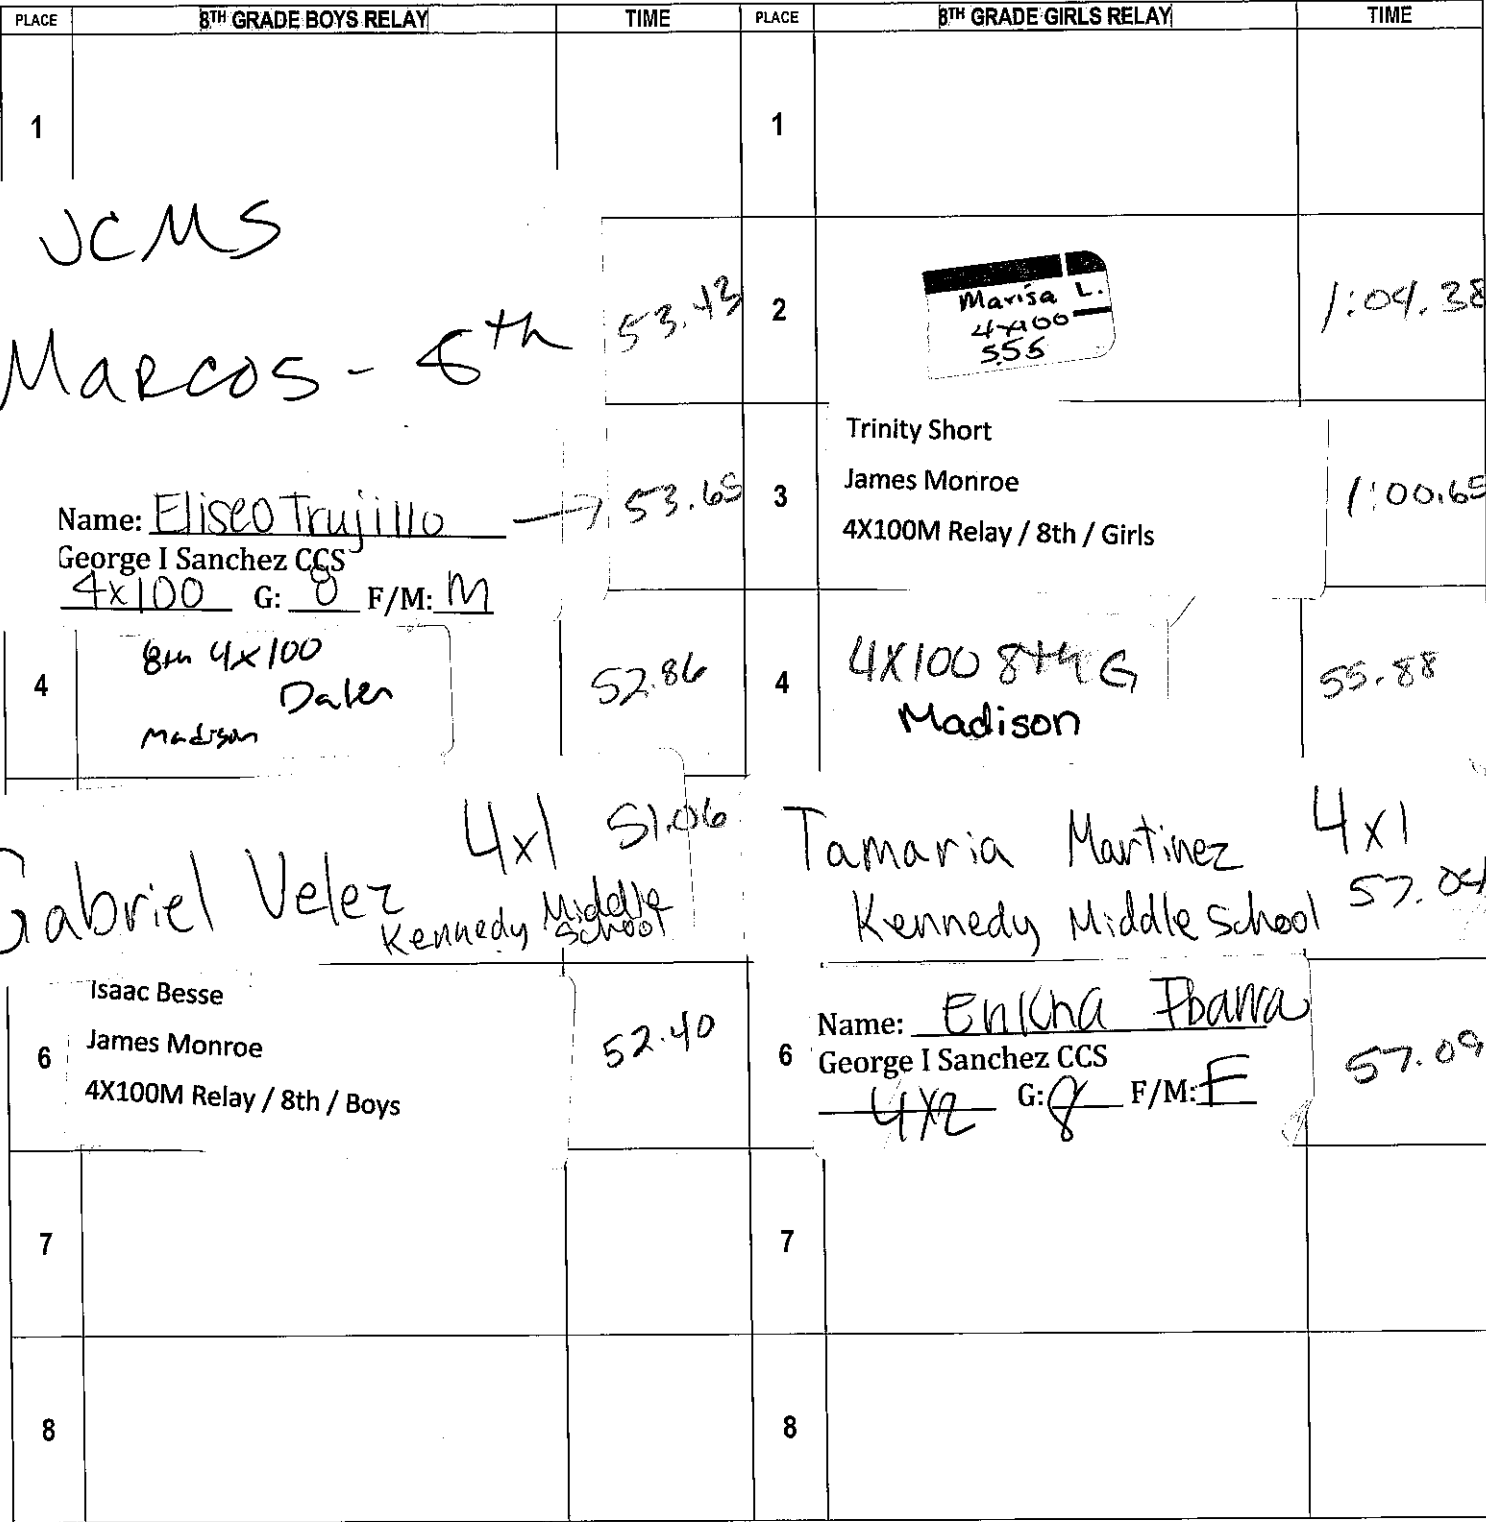 PLACE 8TH GRADE BOYS RELAY TIME PLACE 8TH GRADE GIRLS RELAY TIME
1 1
JCMS
Marcos - 8th 53.43
2
Marisa L.
4x100
555
1:04.38
Name: Eliseo Trujillo → 53.65
George I Sanchez CCS
4x100 G: 8 F/M: M
3
Trinity Short
James Monroe
4X100M Relay / 8th / Girls
1:00.65
4
8th 4x100
Daken
Madison
52.86
4
4X100 8th G
Madison
55.88
Gabriel Velez 4x1 51.06
Kennedy Middle
School
Tamaria Martinez 4x1
Kennedy Middle School 57.04
6
Isaac Besse
James Monroe
4X100M Relay / 8th / Boys
52.40
6
Name: Ibarra
George I Sanchez CCS
4X2 G: 8 F/M: F
57.09
7 7
8 8